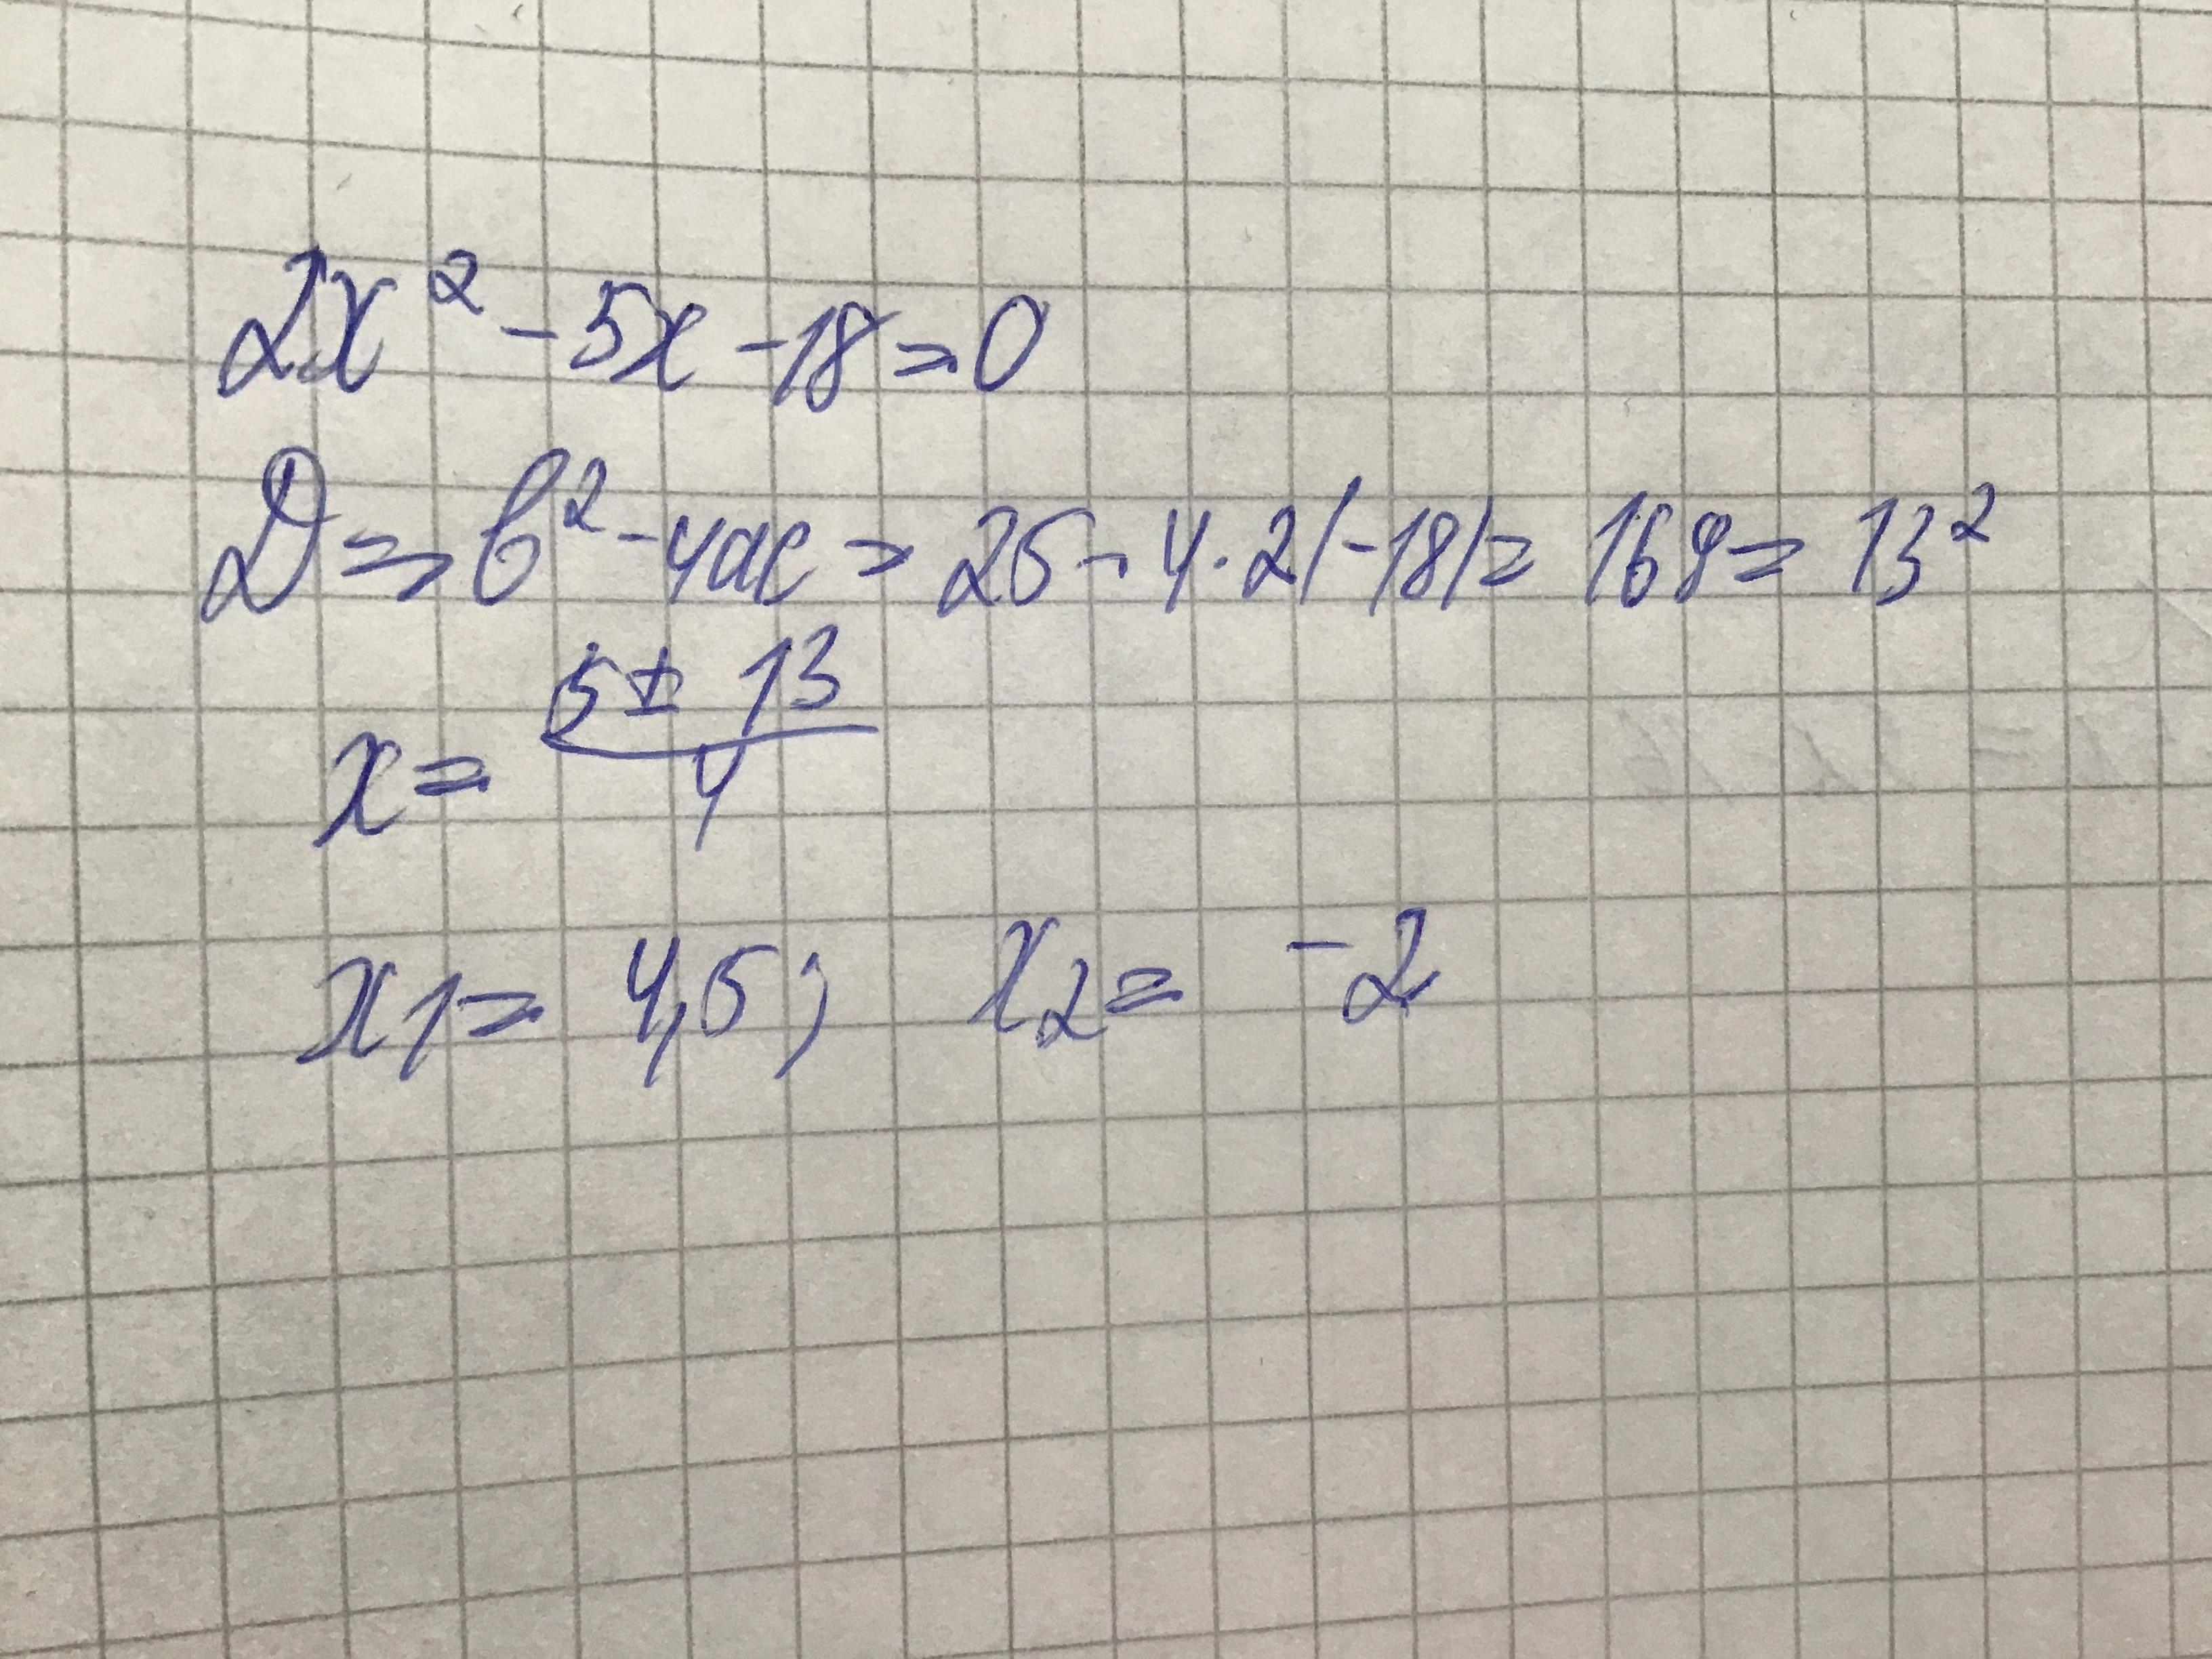 2x² - 5x - 18 = 0
D = b² - 4ac = 25 - 4·2(-18) = 169 = 13²
x = (5 ± 13)/4
x₁ = 4,5; x₂ = -2